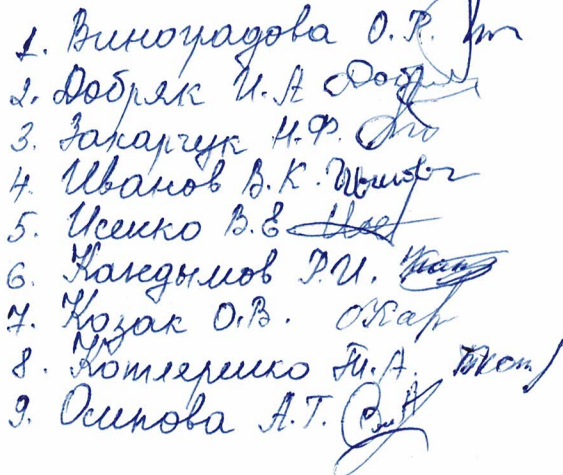 1. Виноградова О.Р.
2. Добряк И.А
3. Захарчук Н.Ф.
4. Иванов В.К.
5. Исенко В.Е
6. Кандымов Р.И.
7. Козак О.В.
8. Котляренко Т.А.
9. Осипова А.Т.